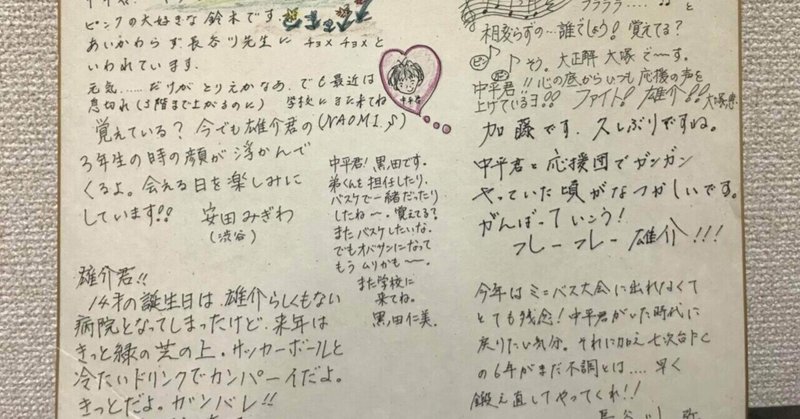 ピンクの大好きな鈴木です。
あいかわらず長谷川先生に チョメチョメと
いわれています。
元気……だけが とりえかなあ、でも最近は
息切れ(3階まで上がるのに) 学校にまた来てね
(NAOMI♪)
中平
覚えている? 今でも雄介君の
3年生の時の顔が浮かんで
くるよ。会える日を楽しみに
しています!!
安田みぎわ
(渋谷)
雄介君!!
14才の誕生日は 雄介らしくもない
病院となってしまったけど、来年は
きっと緑の芝の上、サッカーボールと
冷たいドリンクでカンパーイだよ。
きっとだよ。ガンバレ!!
中平君!黒田です。
弟くんを担任したり、
バスケで一緒だったり
したねー。覚えてる?
またバスケしたいな。
でもオバサンになって
もうムリかも〜。
また学校に
来てね。
黒田仁美。
フララララ……♪と
相変らずの…誰でしょう!覚えてる?
ピンピン そう。大正解 大塚でーす。
中平君!! 心の底からいつも応援の声を
上げているヨ!! ファイト! 雄介!! 大塚恵
加藤です。久しぶりですね。
中平君と応援団でガンガン
やっていた頃がなつかしいです。
がんばっていこう!
フレーフレー 雄介!!!
今年はミニバス大会に出れなくて
とても残念!中平君がいた時代に
戻りたい気分。それに加え七次台FC
の6年がまだ不調とは…。早く
鍛え直してやってくれ!!
長谷川